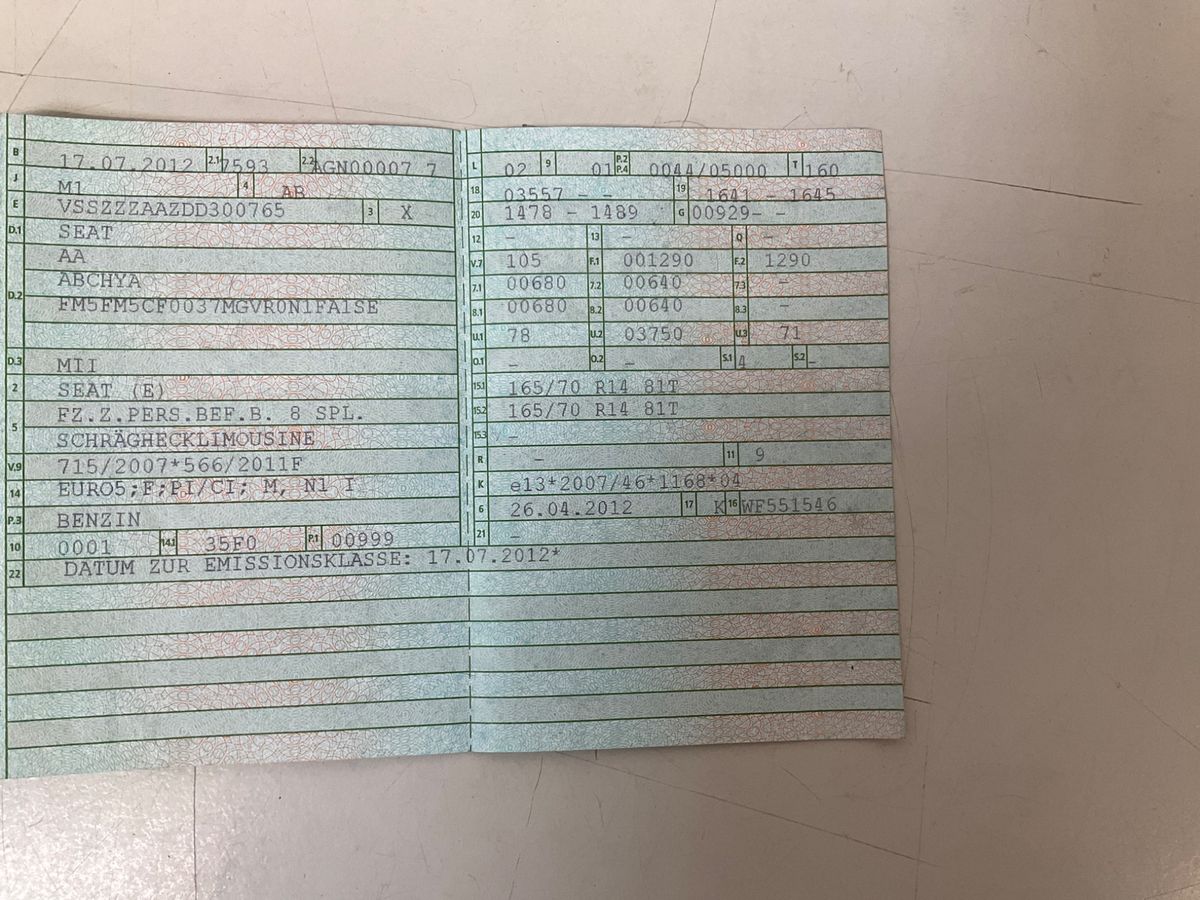 B 17.07.2012 2.1 7593 2.2 AGN00007 7
J M1 4 AB
E VSSZZZAAZDD300765 3 X
D.1 SEAT
AA
D.2 ABCHYA
FM5FM5CF0037MGVR0N1FA1SE
D.3 MII
2 SEAT (E)
5 FZ.Z.PERS.BEF.B. 8 SPL.
SCHRÄGHECKLIMOUSINE
V.9 715/2007*566/2011F
14 EURO5;F;PI/CI; M, N1 I
P.3 BENZIN
10 0001 14.1 35F0 P.1 00999
22 DATUM ZUR EMISSIONSKLASSE: 17.07.2012*
L 02 9 01 P.2 P.4 0044/05000 T 160
18 03557 - - 19 1641 - 1645
20 1478 - 1489 G 00929- -
12 - 13 - Q -
V.7 105 F.1 001290 F.2 1290
7.1 00680 7.2 00640 7.3 -
8.1 00680 8.2 00640 8.3 -
U.1 78 U.2 03750 U.3 71
O.1 - O.2 - S.1 4 S.2 -
15.1 165/70 R14 81T
15.2 165/70 R14 81T
15.3 -
R - 11 9
K e13*2007/46*1168*04
6 26.04.2012 17 K 16 WF551546
21 -